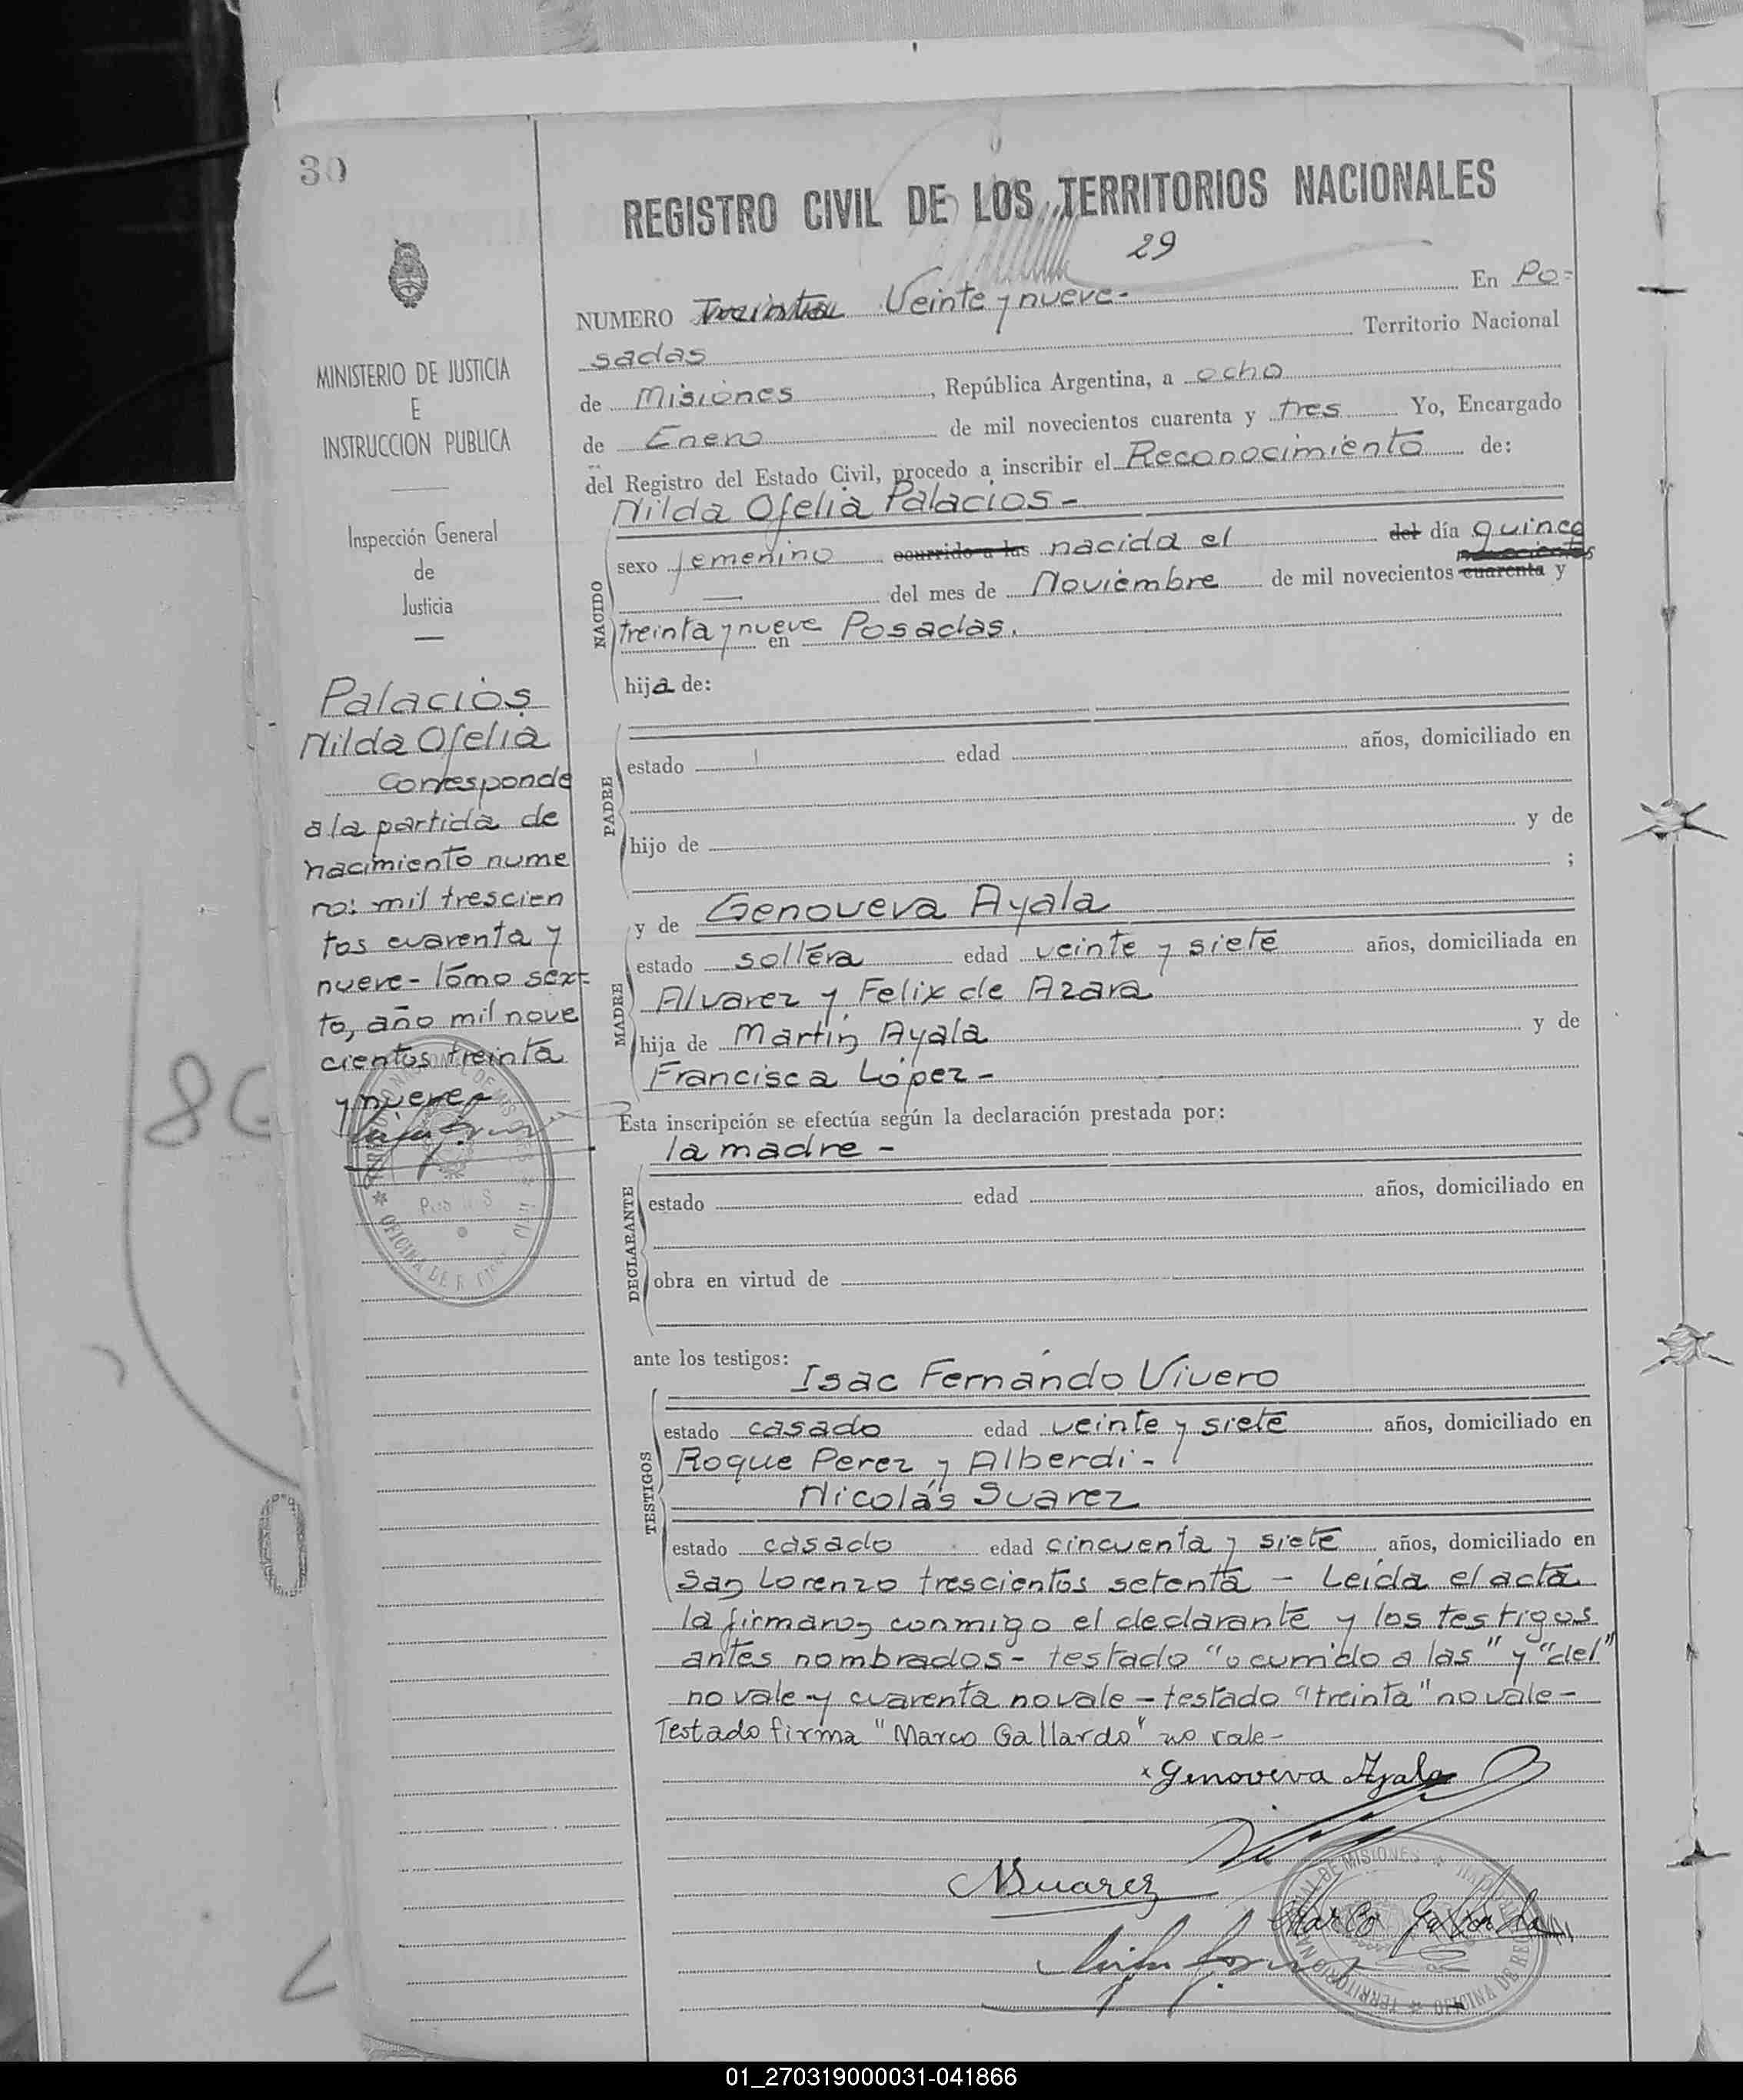 30
REGISTRO CIVIL DE LOS TERRITORIOS NACIONALES
29
NUMERO Treinta Veinte y nueve.- En Po=
sadas Territorio Nacional
de Misiones, República Argentina, a ocho
de Enero de mil novecientos cuarenta y tres Yo, Encargado
del Registro del Estado Civil, procedo a inscribir el Reconocimiento de:
Nilda Ofelia Palacios -
NACIDO
sexo femenino ocurrido a las nacida el del día quince
— del mes de Noviembre de mil novecientos cuarenta y
treinta y nueve en Posadas.
hija de:
PADRE
estado edad años, domiciliado en
hijo de y de
;
MADRE
y de Genoveva Ayala
estado soltera edad veinte y siete años, domiciliada en
Alvarez y Felix de Azara
hija de Martin Ayala y de
Francisca López -
Esta inscripción se efectúa según la declaración prestada por:
la madre -
DECLARANTE
estado edad años, domiciliado en
obra en virtud de
ante los testigos:
TESTIGOS
Isac Fernando Vivero
estado casado edad veinte y siete años, domiciliado en
Roque Perez y Alberdi -
Nicolás Suarez
estado casado edad cincuenta y siete años, domiciliado en
San Lorenzo trescientos setenta - Leida el acta
la firmaron conmigo el declarante y los testigos
antes nombrados - testado "ocurrido a las" y "del"
no vale y cuarenta no vale - testado "treinta" no vale -
Testado firma "Marco Gallardo" no vale -
x Genoveva Ayala
NSuarez
Marco Gallardo
MINISTERIO DE JUSTICIA
E
INSTRUCCION PUBLICA
Inspección General
de
Justicia
Palacios
Nilda Ofelia
Corresponde
a la partida de
nacimiento nume
ro: mil trescien
tos cuarenta y
nueve - tómo sex=
to, año mil nove
cientos treinta
y nueve -
01_270319000031-041866